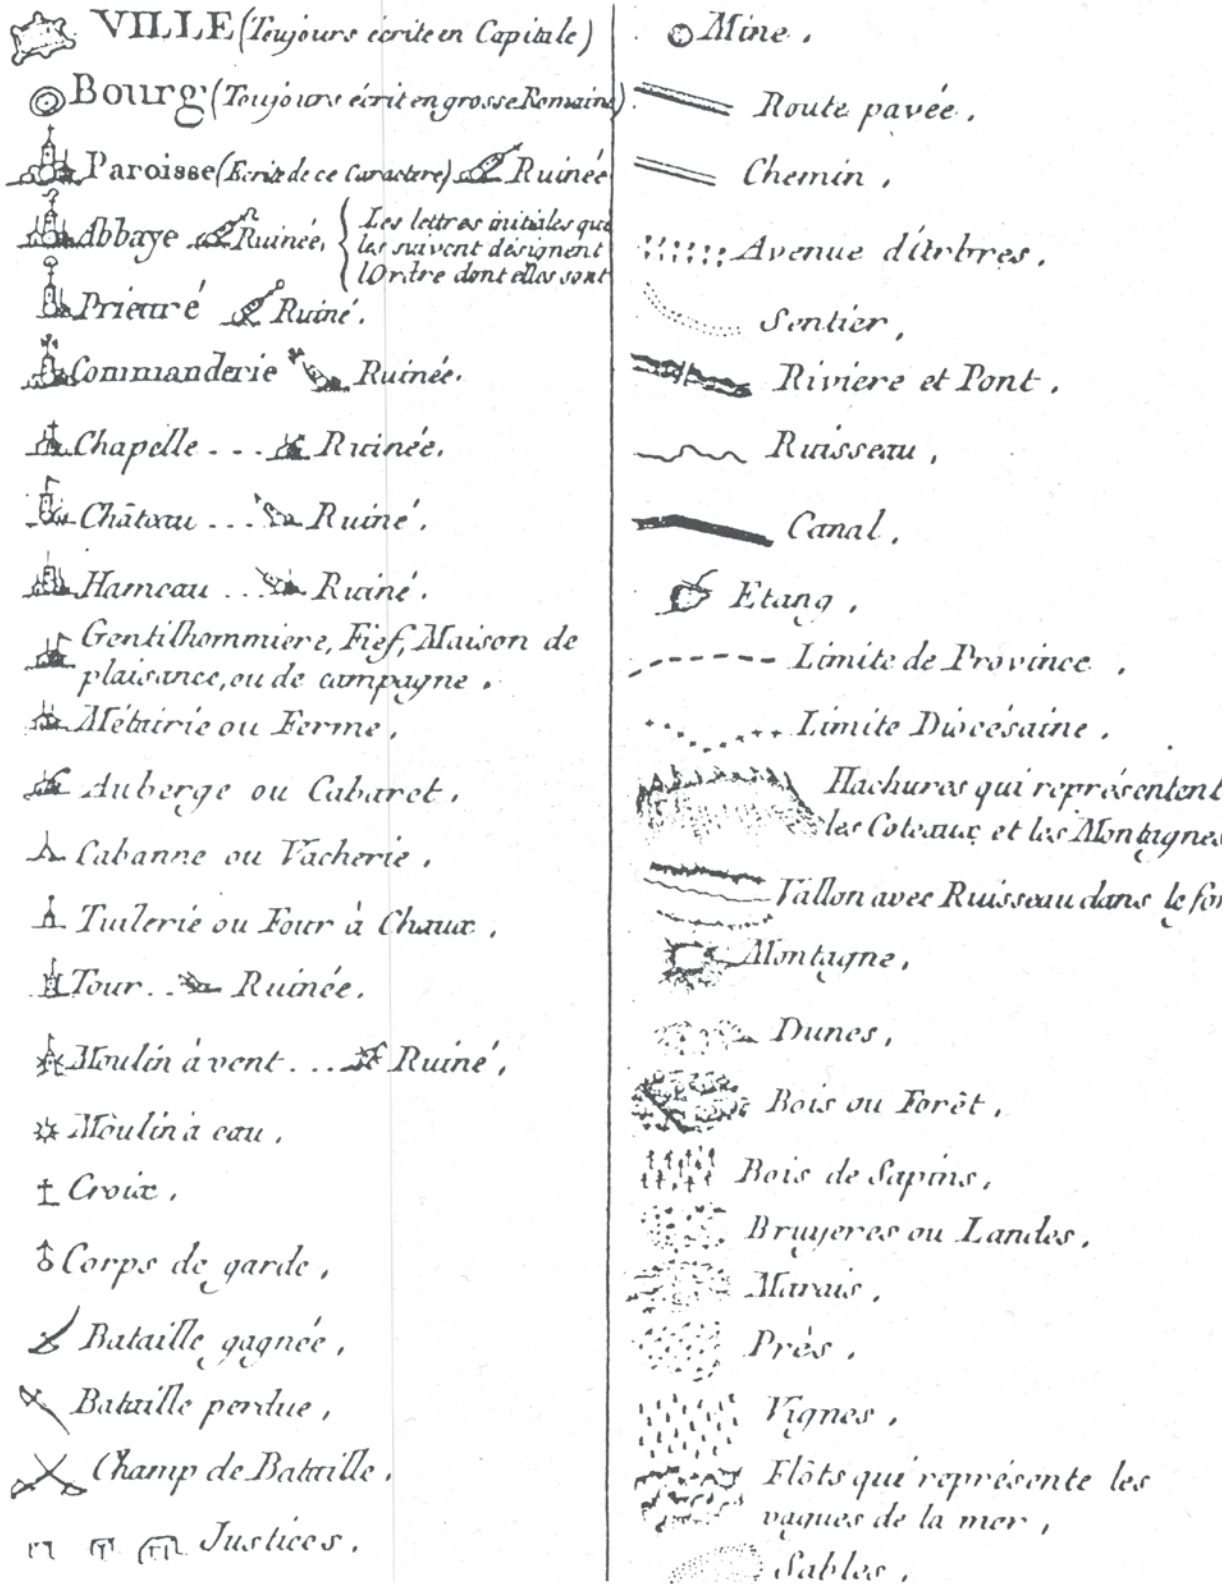 VILLE (Toujours écrite en Capitale)
Bourg (Toujours écrit en grosse Romaine)
Paroisse (Ecrite de ce Caractere) Ruinée
Abbaye Ruinée, Les lettres initiales qui
les suivent désignent
l'Ordre dont elles sont
Prieuré Ruiné.
Commanderie Ruinée.
Chapelle ... Ruinée.
Château ... Ruiné.
Hameau ... Ruiné.
Gentilhommiere, Fief, Maison de
plaisance, ou de campagne.
Métairie ou Ferme,
Auberge ou Cabaret.
Cabanne ou Vacherie,
Tuilerie ou Four à Chaux,
Tour .. Ruinée.
Moulin à vent .... Ruiné,
Moulin à eau,
Croix,
Corps de garde,
Bataille gagnée,
Bataille perdue,
Champ de Bataille.
Justices,
Mine,
Route pavée,
Chemin,
Avenue d'Arbres,
Sentier,
Riviere et Pont,
Ruisseau,
Canal,
Etang,
Limite de Province,
Limite Diocésaine,
Hachures qui représentent
les Coteaux et les Montagnes
Vallon avec Ruisseau dans le fon
Montagne,
Dunes,
Bois ou Forêt,
Bois de Sapins,
Bruyeres ou Landes,
Marais,
Près,
Vignes,
Flôts qui représente les
vagues de la mer,
Sables,